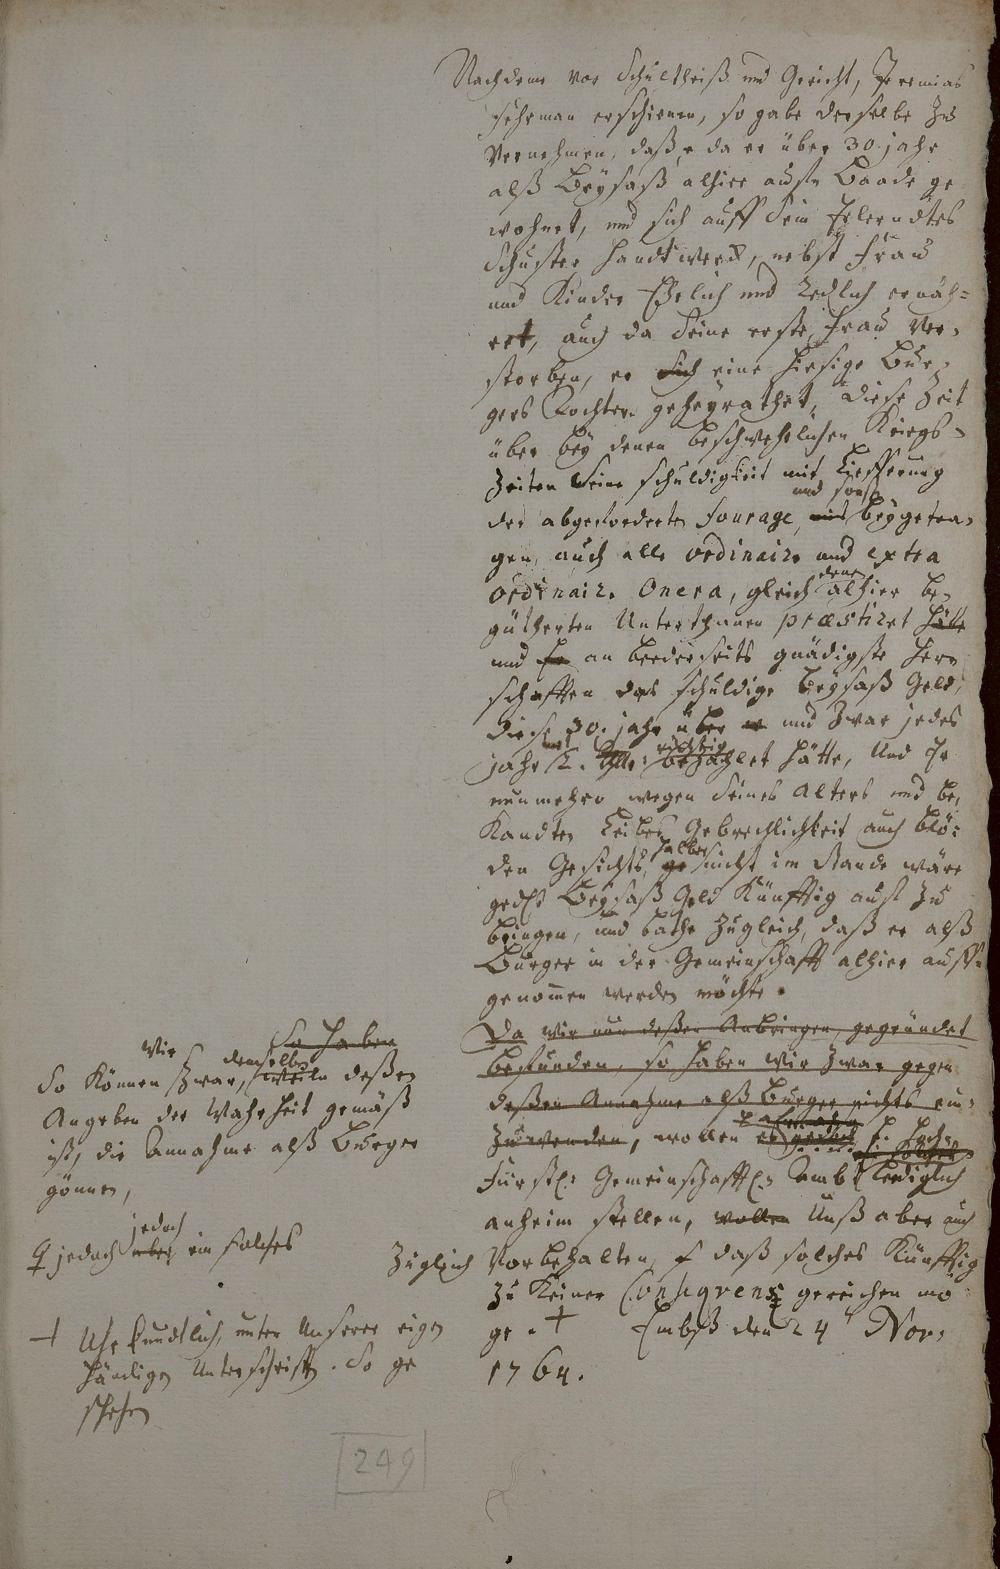 Nachdeme vor Schultheiß und Gericht, Jeremias
Fehrman erschienen, so gabe derselbe zu
Vernehmen, daß, da er über 30. jahr
alß Beysaß alhier aufm Baade ge
wohnet, und sich auff sein Erlerndtes
Schuster Handtwerck, nebst Frau
und Kinder Ehrlich und Redlich ernäh=
ret, auch da seine erste Frau Ver-
storben, er sich eine hiesige Bur-
gers Tochter geheyrathet, diese Zeit
über bey denen beschwehrlichen Kriegs-
Zeiten seine schuldigkeit mit Lieferung
und sonst
der abgeforderten Fourage, mit beygetra-
gen, auch alle ordinaire und extra
ordinaire Onera, gleich denen alhier be-
gütherten Unterthanen præstiret hätte
und er an beederseits gnädigste Herr-
schafften das schuldige Beysaß Geld,
diese 30. jahr über und zwar jedes
jahr 2. richtig bezahlet hätte, Und Er
nunmehro wegen seines Alters und be-
kandten Leibes Gebrechlichkeit auch blö-
den Gesichts halber nicht im Stande wäre
geds Beysaß Geld Künfftig auf zu
bringen, und bathe zugleich, daß er alß
Burger in der Gemeinschafft alhier auff-
genommen werden möchte.
Da wir nun deßen Anbringen gegründet
befunden, so haben wir zwar gegen
deßen Annahme alß Burger nichts ein-
zuwenden, wollen
Fürstl: Gemeinschafftl: Ambt Lediglich
anheim stellen, wollen Unß aber auch
Vorbehalten, daß solches Künfftig
zu Keiner Consequens gereichen mö
ge. + Embß den 24 Nov:
1764.
So haben
wir demselben
So Können zwar, weiln deßen
Angeben der Wahrheit gemäß
ist, die Annahme alß Burger
gönnen,
jedoch
jedoch aber ein solches
Zugleich
+ Uhrkundtlich unter Unserer eigen
händigen Unterschrifft. So ge
schehen
249